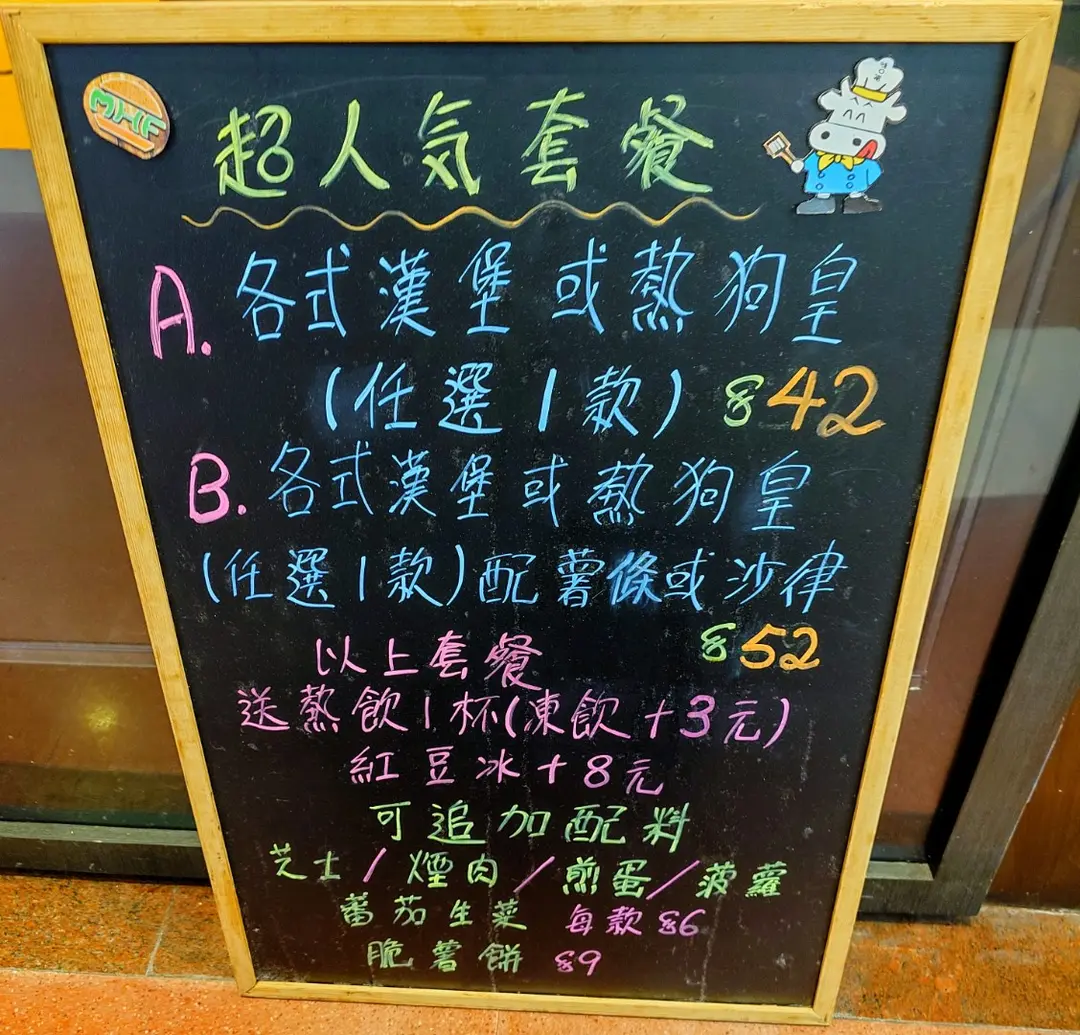 MHF
超人氣套餐
A. 各式漢堡或熱狗皇
(任選1款) $42
B. 各式漢堡或熱狗皇
(任選1款)配薯條或沙律
$52
以上套餐
送熱飲1杯(凍飲+3元)
紅豆冰+8元
可追加配料
芝士/煙肉/煎蛋/菠蘿
蕃茄生菜 每款$6
脆薯餅 $9